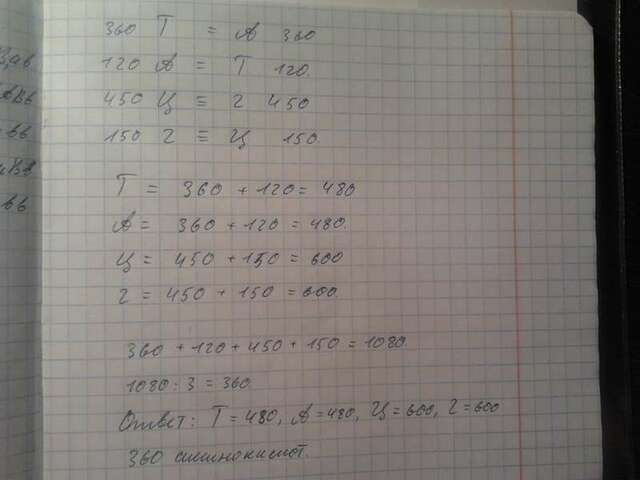 360 Т = А 360
120 А = Т 120.
450 Ц ≡ г 450
150 г ≡ Ц 150.
Т = 360 + 120 = 480
А = 360 + 120 = 480.
Ц = 450 + 150 = 600
г = 450 + 150 = 600.
360 + 120 + 450 + 150 = 1080.
1080 : 3 = 360.
Ответ: Т = 480, А = 480, Ц = 600, г = 600
360 аминокислот.